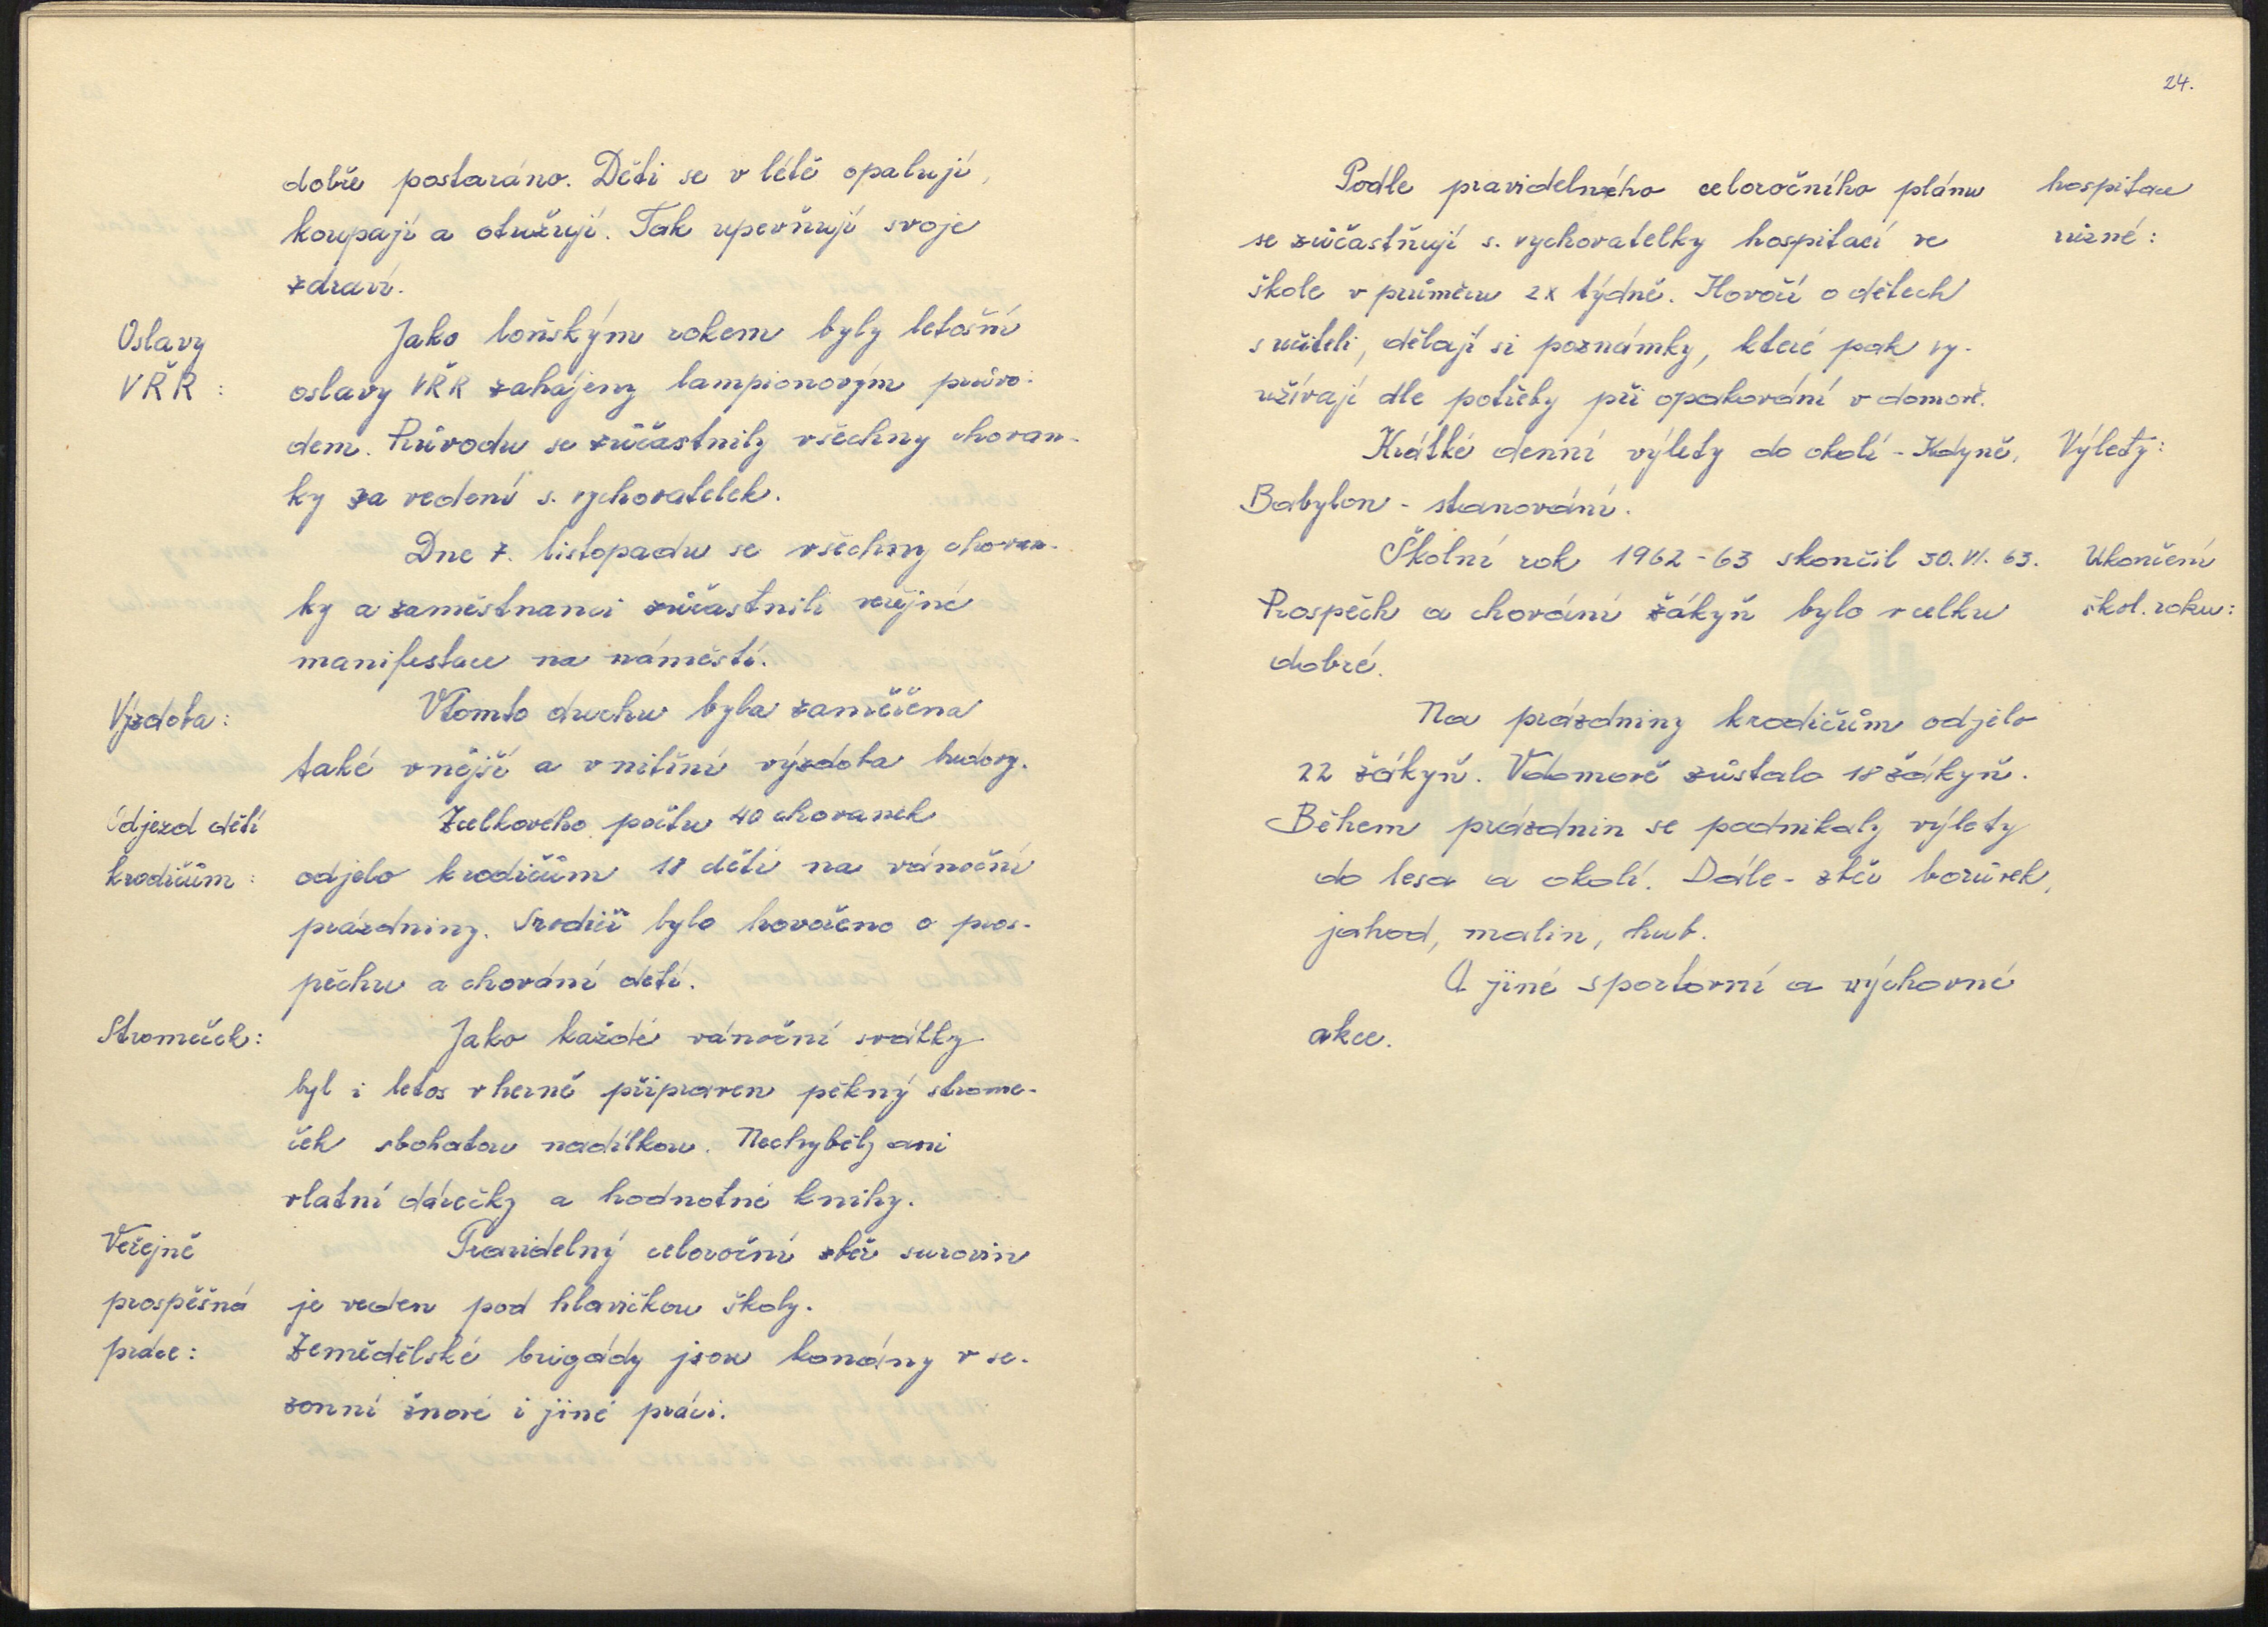 dobře postaráno. Děti se v létě opalují,
koupají a otužují. Tak upevňují svoje
zdraví.
Oslavy
VŘR :
Jako loňským rokem byly letošní
oslavy VŘR zahájeny lampionovým průvo-
dem. Průvodu se zůčastnily všechny chovan-
ky za vedení s. vychovatelek.
Dne 7. listopadu se všechny chovan-
ky a zaměstnanci zůčastnili veřejné
manifestace na náměstí.
Výzdoba:
Vtomto duchu byla zaměřena
také vnější a vnitřní výzdoba budovy.
Odjezd dětí
krodičům :
Zcelkového počtu 40 chovanek
odjelo krodičům 18 dětí na vánoční
prázdniny. Srodiči bylo hovořeno o pros-
pěchu a chování dětí.
Stromeček:
Jako každé vánoční svátky
byl i letos vherně připraven pěkný strome-
ček sbohatou nadílkou. Nechyběly ani
vlatní dárečky a hodnotné knihy.
Veřejně
prospěšná
práce:
Pravidelný celoroční sběr surovin
je veden pod hlavičkou školy.
Zemědělské brigády jsou konány v se-
zonní žnové i jiné práci.
24.
Podle pravidelného celoročního plánu
se zůčastňují s. vychovatelky hospitací ve
škole v průměru 2x týdně. Hovoří o dětech
s učiteli, dělají si poznámky, které pak vy-
užívají dle potřeby při opakování v domově.
hospitace
různé:
Krátké denní výlety do okolí - Kdyně,
Babylon - stanování.
Výlety:
Školní rok 1962-63 skončil 30. VI. 63.
Prospěch a chování žákyň bylo vcelku
dobré.
Ukončení
škol. roku:
Na prázdniny krodičům odjelo
22 žákyň. Vdomově zůstalo 18 žákyň.
Během prázdnin se podnikaly výlety
do lesa a okolí. Dále - sběr borůvek,
jahod, malin, hub.
A jiné sportovní a výchovné
akce.